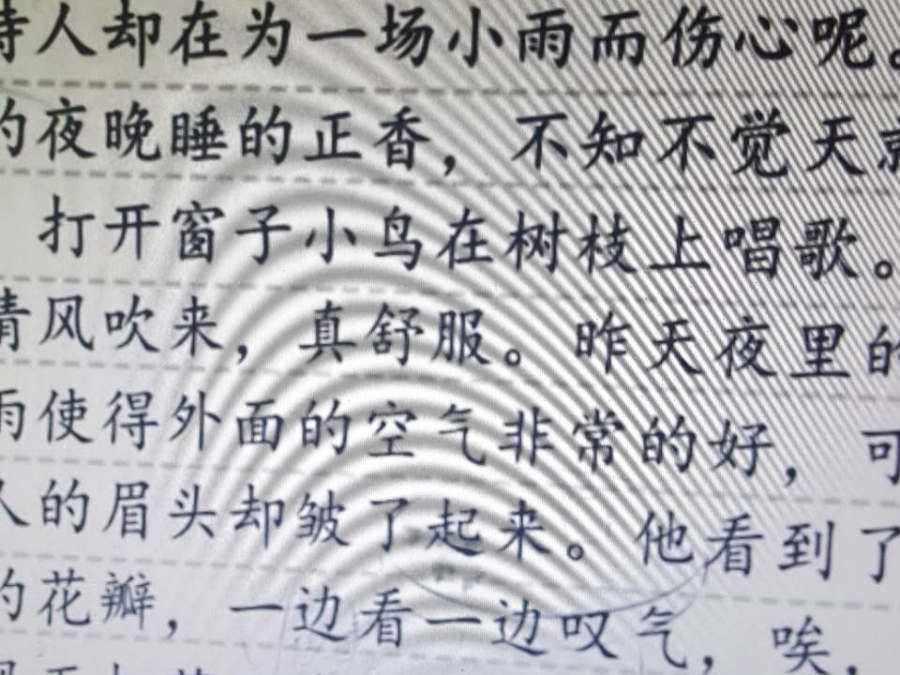 诗人却在为一场小雨而伤心呢。
的夜晚睡的正香，不知不觉天就
打开窗子小鸟在树枝上唱歌。
清风吹来，真舒服。昨天夜里的
雨使得外面的空气非常的好，可
人的眉头却皱了起来。他看到了
的花瓣，一边看一边叹气，唉，